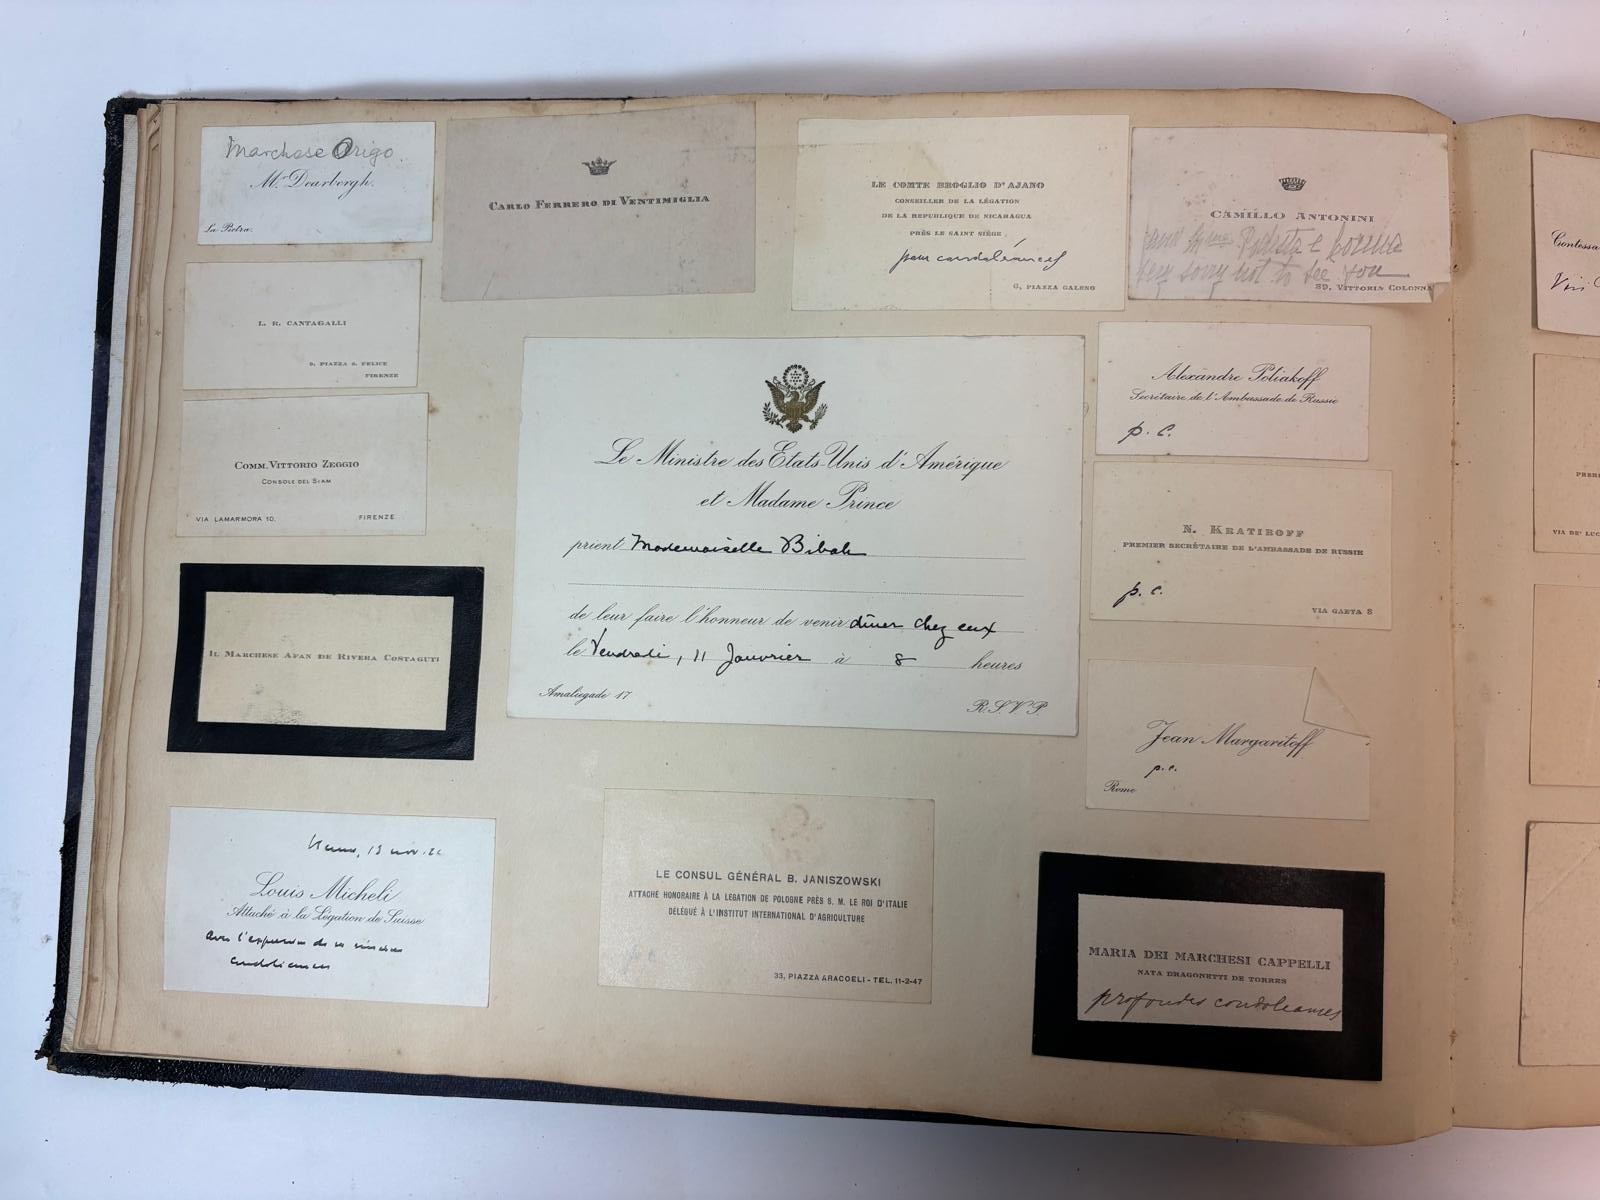 Marchese Origo.
Mr. Dearbergh.
La Pietra.
CARLO FERRERO DI VENTIMIGLIA
LE COMTE BROGLIO D'AJANO
CONSEILLER DE LA LÉGATION
DE LA REPUBLIQUE DE NICARAGUA
PRÈS LE SAINT SIÈGE
pour condoléances
6, PIAZZA GALENO
CAMILLO ANTONINI
very sorry not to see you
89, VITTORIA COLONNA
L. R. CANTAGALLI
9, PIAZZA S. FELICE
FIRENZE
COMM. VITTORIO ZEGGIO
CONSOLE DEL SIAM
VIA LAMARMORA 10,
FIRENZE
IL MARCHESE AFAN DE RIVERA COSTAGUTI
Le Ministre des Etats-Unis d'Amérique
et Madame Prince
prient Mademoiselle Bibak
de leur faire l'honneur de venir dîner chez eux
le Vendredi, 11 Janvrier à 8 heures
Amaliegade 17
R.S.V.P.
Alexandre Poliakoff
Secrétaire de l'Ambassade de Russie
p. c.
N. KRATIROFF
PREMIER SECRÉTAIRE DE L'AMBASSADE DE RUSSIE
p. c.
VIA GAETA 8
Jean Margaritoff
p.c.
Rome
13 nov.
Louis Micheli
Attaché à la Légation de Suisse
avec l'expression de ses sincères
condoléances
LE CONSUL GÉNÉRAL B. JANISZOWSKI
ATTACHÉ HONORAIRE À LA LÉGATION DE POLOGNE PRÈS S. M. LE ROI D'ITALIE
DÉLÉGUÉ À L'INSTITUT INTERNATIONAL D'AGRIOULTURE
p. c.
33, PIAZZA ARACOELI - TEL. 11-2-47
MARIA DEI MARCHESI CAPPELLI
NATA DRAGONETTI DE TORRES
profondes condoleances
Contessa
VIA DE' LUC